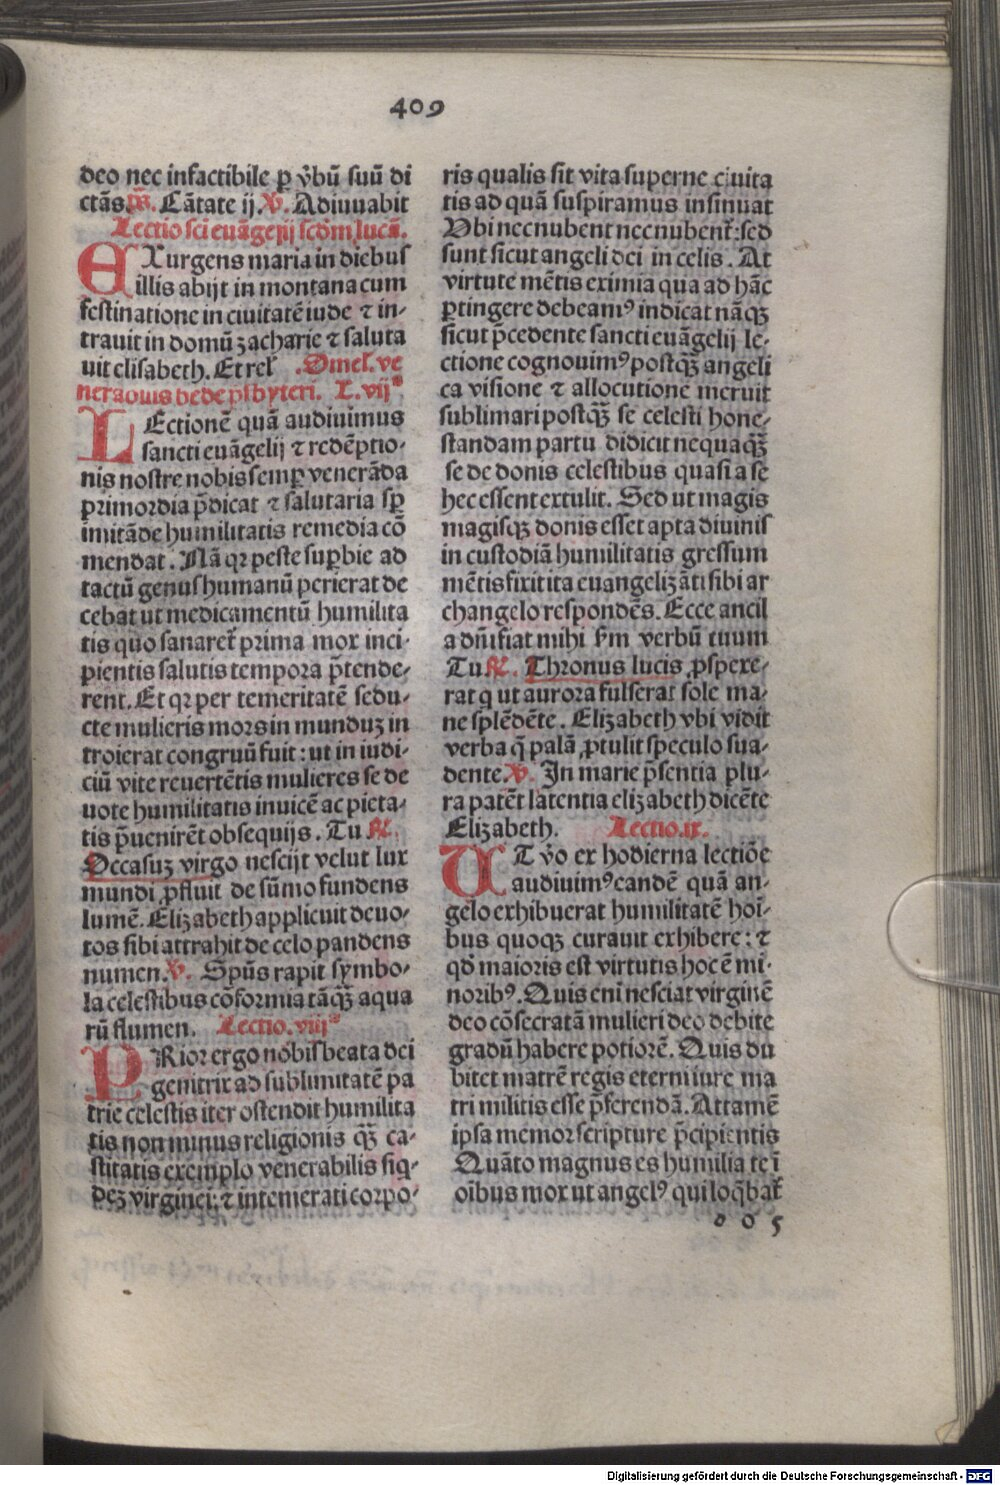 409
deo nec infactibile ꝑ v̉bū suū di
ctās. p̄s. Cātate ij. ℣. Adiuuabit
Lectio sci euāgerij scd̓m lucā.
EXurgens maria in diebus
illis abijt in montana cum
festinatione in ciuitatē iude ⁊ in-
trauit in domū zacharie ⁊ saluta
uit elisabeth. Et rel̓ . Omel̓. ve
neraouis bede p̄sbyteri. L. vijª
LEctionē quā audiuimus
sancti euāgelij ⁊ redēptio-
nis nostre nobis semꝑ venerāda
primordia p̄dicat ⁊ salutaria sꝑ
imitāde humilitatis remedia cō
mendat. Nā qꝛ peste suꝑbie ad
tactū genus humanū perierat de
cebat ut medicamentū humilita
tis quo sanaret᷑ prima mox inci-
pientis salutis tempora p̄tende-
rent. Et qꝛ per temeritatē sedu-
cte mulieris mors in munduꝫ in
troierat congruū fuit: ut in iudi-
ciū vite reuertētis mulieres se de
uote humilitatis inuicē ac pieta-
tis p̄uenirēt obsequijs. Tu ℟.
Occasuꝫ virgo nescijt velut lux
mundi ꝓfluit de sūmo fundens
lumē. Elizabeth applicuit deuo-
tos sibi attrahit de celo pandens
numen. ℣. Spūs rapit symbo-
la celestibus cōformia tāqꝫ̄ aqua
rū flumen. Lectio. viijª
PRior ergo nobis beata dei
genitrix ad sublimitatē pa
trie celestis iter ostendit humilita
tis non minus religionis qꝫ̄ ca-
stitatis exemplo venerabilis siq-
deꝫ virginei: ⁊ intemerati corpo-
ris qualis sit vita superne ciuita
tis ad quā suspiramus insinuat
Vbi nec nubent nec nubent᷑: sed
sunt sicut angeli dei in celis. At
virtute mētis eximia qua ad hāc
ꝑtingere debeamꝰ indicat nāqꝫ
sicut p̄cedente sancti euāgelij le-
ctione cognouimꝰ postqꝫ̄ angeli
ca visione ⁊ allocutione meruit
sublimari postqꝫ̄ se celesti hone-
standam partu didicit nequaqꝫ̄
se de donis celestibus quasi a se
hec essent extulit. Sed ut magis
magisqꝫ donis esset apta diuinis
in custodiā humilitatis gressum
mētis fixit ita euangelizāti sibi ar
changelo respondēs. Ecce ancil
a dn̄i fiat mihi ẜm verbū tuum
Tu ℟. Thronus lucis ꝓspere-
rat q ut aurora fulserat sole ma-
ne splēdēte. Elizabeth vbi vidit
verba q̄ palā ꝓtulit speculo sua-
dente. ℣. In marie p̄sentia plu-
ra patēt latentia elizabeth dicēte
Elizabeth. Lectio. ix.
UT v̉o ex hodierna lectiōe
audiuimꝰ eandē quā an-
gelo exhibuerat humilitatē hoī-
bus quoqꝫ curauit exhibere: ⁊
qd̓ maioris est virtutis hoc ē mi-
noribꝰ. Quis enī nesciat virginē
deo cōsecratā mulieri deo debite
gradū habere potiorē. Quis du
bitet matrē regis eterni iure ma
tri militis esse p̄ferendā. Attamē
ipsa memor scripture p̄cipientis
Quāto magnus es humilia te ī
oībus mox ut angelꝰ qui loq̄bat᷑
o o 5
Digitalisierung gefördert durch die Deutsche Forschungsgemeinschaft - DFG